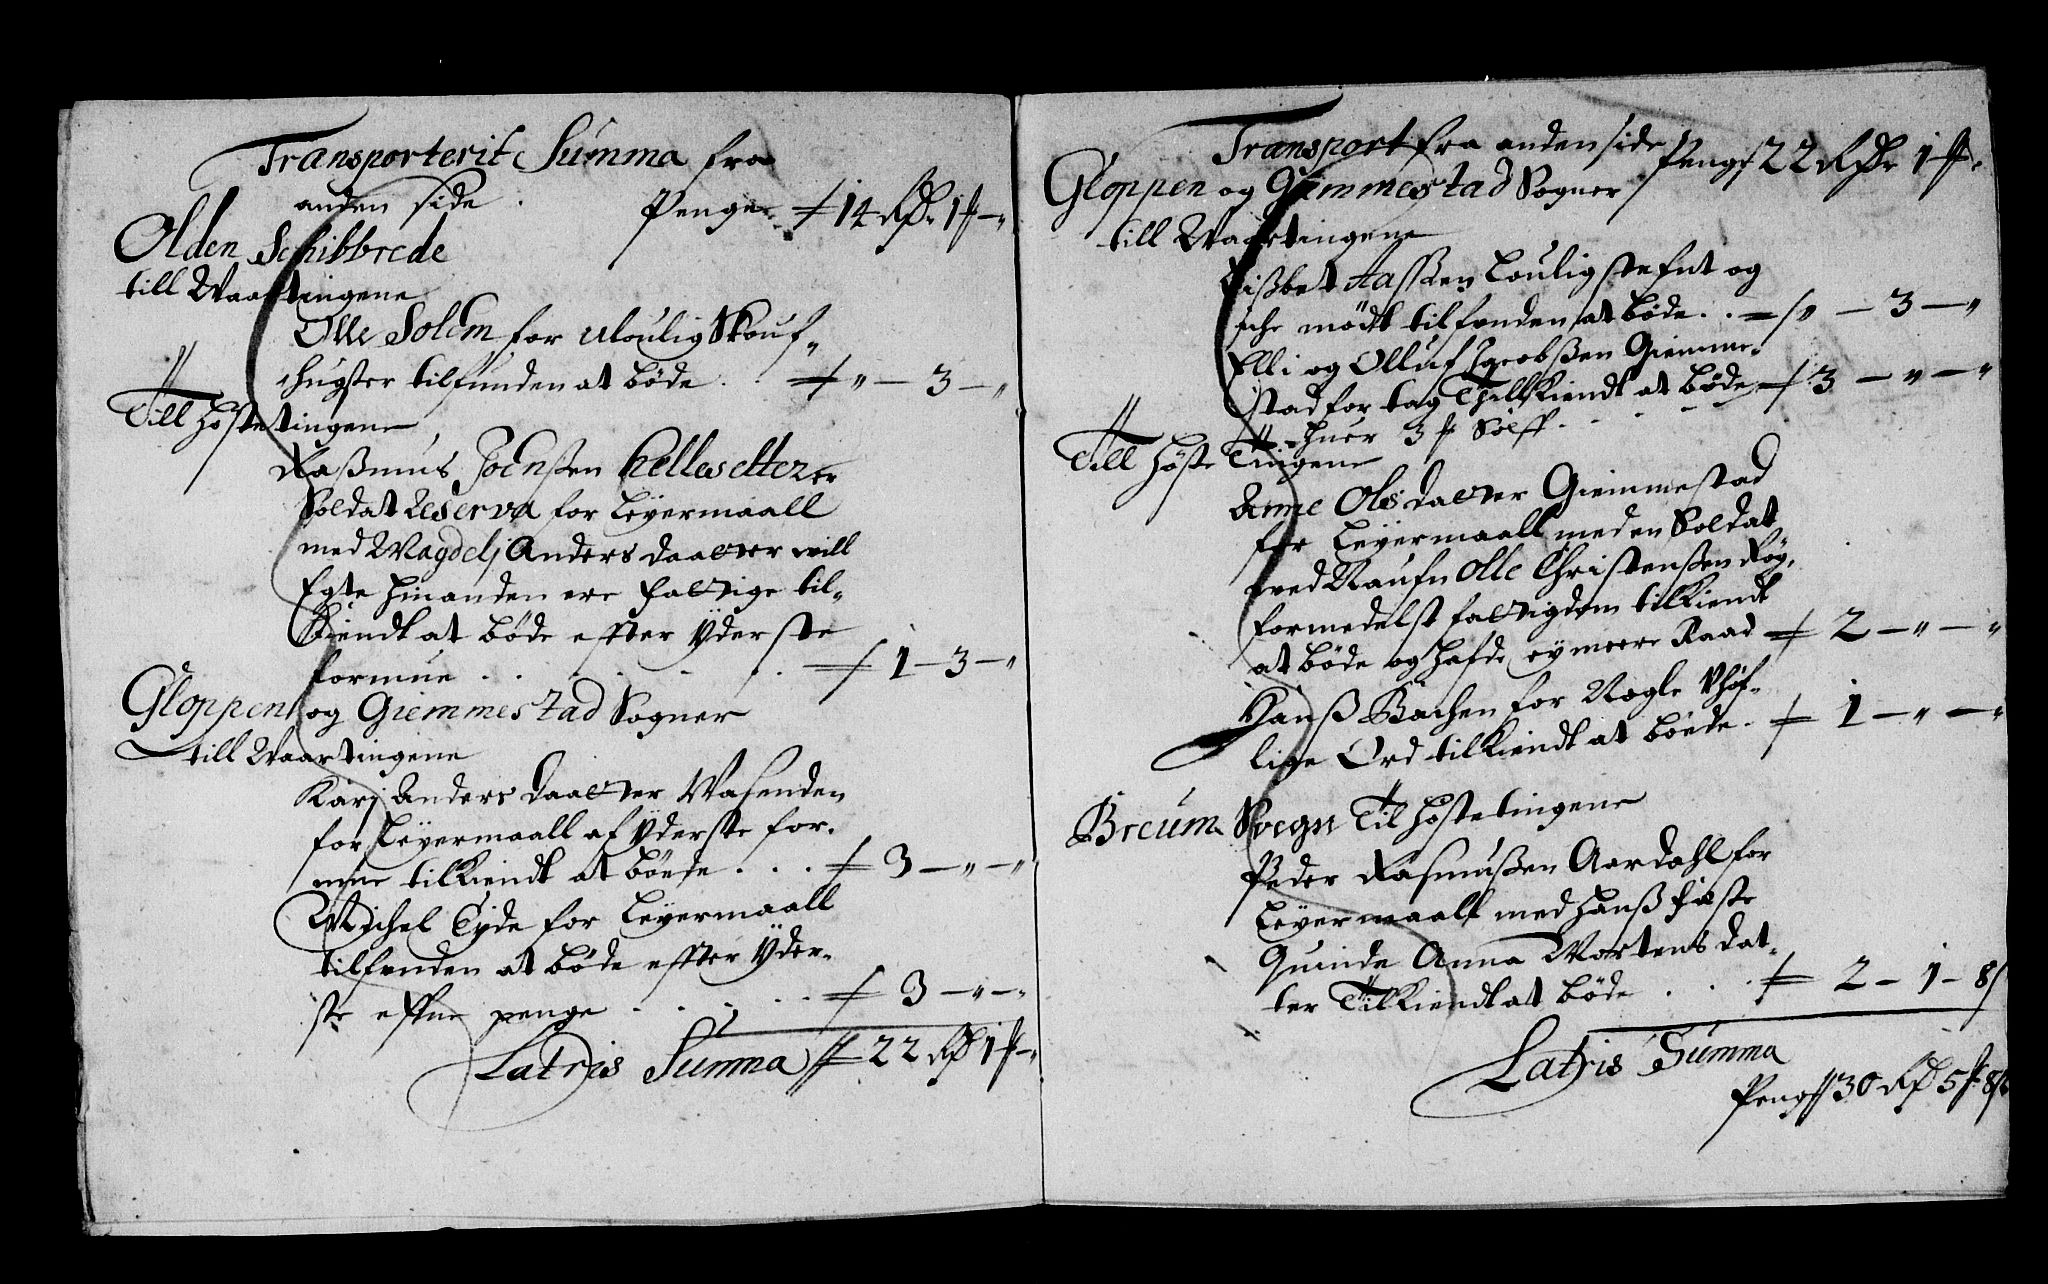 Transporterit Summa fra
anden side. Penge 14 Rdr 1 # - "
Olden Schibbrede
till Waartingene
Olle Solem for Uloulig Skouf-
hugster tilfunden at bøde . . " - 3 - "
Till Høstetingene
Raßmus Joenßen Hellesetter er
Soldat Reserva for Leyermaall
med Magdeli Andersdaatter will
Egte hinanden ere fattige til-
kiendt at bøde efter Yderste
formue . . . . . 1 - 3 - "
Gloppen og Giemmestad Sogner
till Waartingene
Karj Andersdaatter Wasenden
for Leyermaall af Yderste for-
mue tilkiendt at bøede . . . 3 - " - "
Michel Eyde for Leyermaall
tilfunden at bøde efter Yder-
ste effne penge . . . . . 3 - " - "
Latris Summa 22 Rd 1 # - "
Transport fra anden side Penge 22 Rdr 1 #
Gloppen og Giemmestad Sogner
till Waartingene
Lißbet Aaßen Loulig stefnt og
iche mødt tilfunden at bøde . . " - 3 - "
Elli og Olluf Jacobßen Giemme-
stad for tag Thillkiendt at bøde 3 - " - "
huer 3 # Sølff . . . .
Till Høste Tingene
Anne Olsdatter Giemmestad
for Leyermaall med en Soldat
wed Naufn Olle Christenßen Røy,
formedelst fattigdom tilkiendt
at bøde og hafde ey meere Raad 2 - " - "
Hanß Bachen for Nogle Uhøf-
lige Ord tilkiendt at bøede . 1 - " - "
Breum Sogn Til Høstetingene
Peder Rasmußen Aardahl for
Leyermaall med Hanß fæste
Quinde Anna Mortens dat-
ter Tilkiendt at bøde . . . 2 - 1 - 8 ß
Latris Summa
Penge 30 Rd 5 # 8 ß